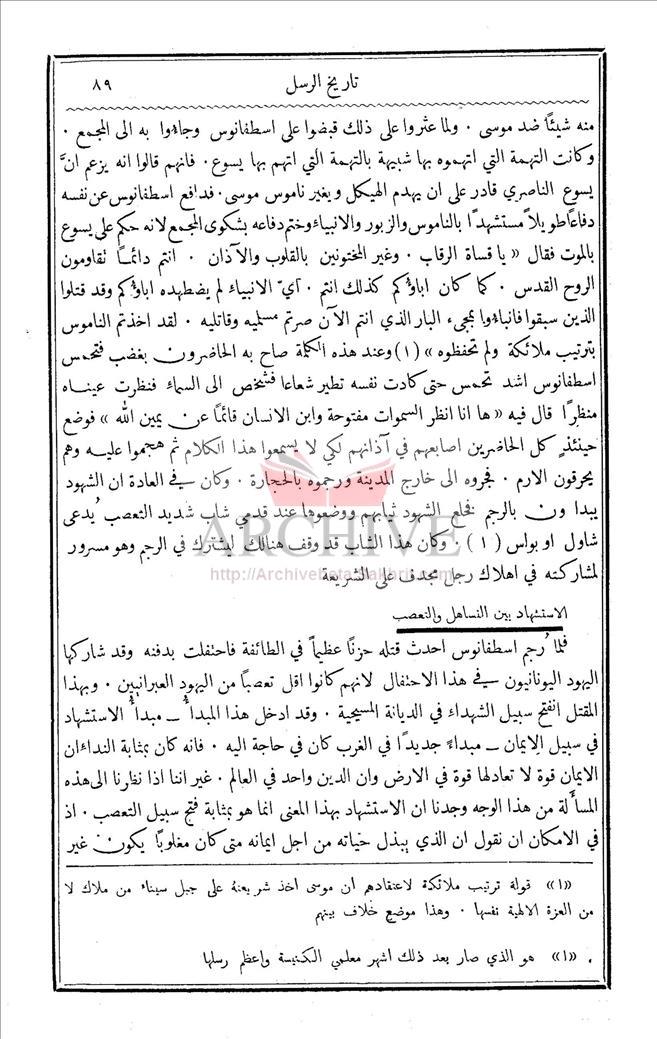 تاريخ الرسل ٨٩
منه شيئًا ضد موسى ٠ ولما عثروا على ذلك قبضوا على اسطفانوس وجاءوا به الى المجمع ٠
وكانت التهمة التي اتهموه بها شبيهة بالتهمة التي اتهم بها يسوع ٠ فانهم قالوا انه يزعم انَّ
يسوع الناصري قادر على ان يهدم الهيكل ويغير ناموس موسى ٠ فدافع اسطفانوس عن نفسه
دفاعًا طويلاً مستشهدًا بالناموس والزبور والانبياء وختم دفاعه بشكوى المجمع لانه حكم على يسوع
بالموت فقال « يا قساة الرقاب ٠ وغير المختونين بالقلوب والآذان ٠ انتم دائمًا تقاومون
الروح القدس ٠ كما كان اباؤكم كذلك انتم ٠ ايّ الانبياء لم يضطهده اباؤكم وقد قتلوا
الذين سبقوا فانبأوا بمجيء البار الذي انتم الآن صرتم مسلميه وقاتليه ٠ لقد اخذتم الناموس
بترتيب ملائكة ولم تحفظوه » (١) وعند هذه الكلمة صاح به الحاضرون بغضب فتحمس
اسطفانوس اشد تحمس حتى كادت نفسه تطير شعاعا فشخص الى السماء فنظرت عيناه
منظرًا قال فيه « ها انا انظر السموات مفتوحة وابن الانسان قائمًا عن يمين الله » فوضع
حينئذٍ كل الحاضرين اصابعهم في آذانهم لكي لا يسمعوا هذا الكلام ثم هجموا عليه وهم
يحرقون الارم ٠ فجروه الى خارج المدينة ورجموه بالحجارة ٠ وكان في العادة ان الشهود
يبدأون بالرجم فخلع الشهود ثيابهم ووضعوها عند قدمي شاب شديد التعصب يُدعى
شاول او بولس (١) ٠ وكان هذا الشاب قد وقف هنالك ليشترك في الرجم وهو مسرور
لمشاركته في اهلاك رجل مجدف على الشريعة
الاستشهاد بين التساهل والتعصب
فلما رُجم اسطفانوس احدث قتله حزنًا عظيمًا في الطائفة فاحتفلت بدفنه وقد شاركها
اليهود اليونانيون في هذا الاحتفال لانهم كانوا اقل تعصبًا من اليهود العبرانيين ٠ وبهذا
المقتل انفتح سبيل الشهداء في الديانة المسيحية ٠ وقد ادخل هذا المبدأُ – مبدأُ الاستشهاد
في سبيل الايمان – مبداءً جديدًا في الغرب كان في حاجة اليه ٠ فانه كان بمثابة النداء ان
الايمان قوة لا تعادلها قوة في الارض وان الدين واحد في العالم ٠ غير اننا اذا نظرنا الى هذه
المسألة من هذا الوجه وجدنا ان الاستشهاد بهذا المعنى انما هو بمثابة فتح سبيل التعصب ٠ اذ
في الامكان ان نقول ان الذي يبذل حياته من اجل ايمانه متى كان مغلوبًا يكون غير
«١» قولة ترتيب ملائكة لاعتقادهم ان موسى اخذ شريعته على جبل سيناء من ملاك لا
من العزة الالهية نفسها ٠ وهذا موضع خلاف بينهم
«١» هو الذي صار بعد ذلك اشهر معلمي الكنيسة واعظم رسلها
ARCHIVE